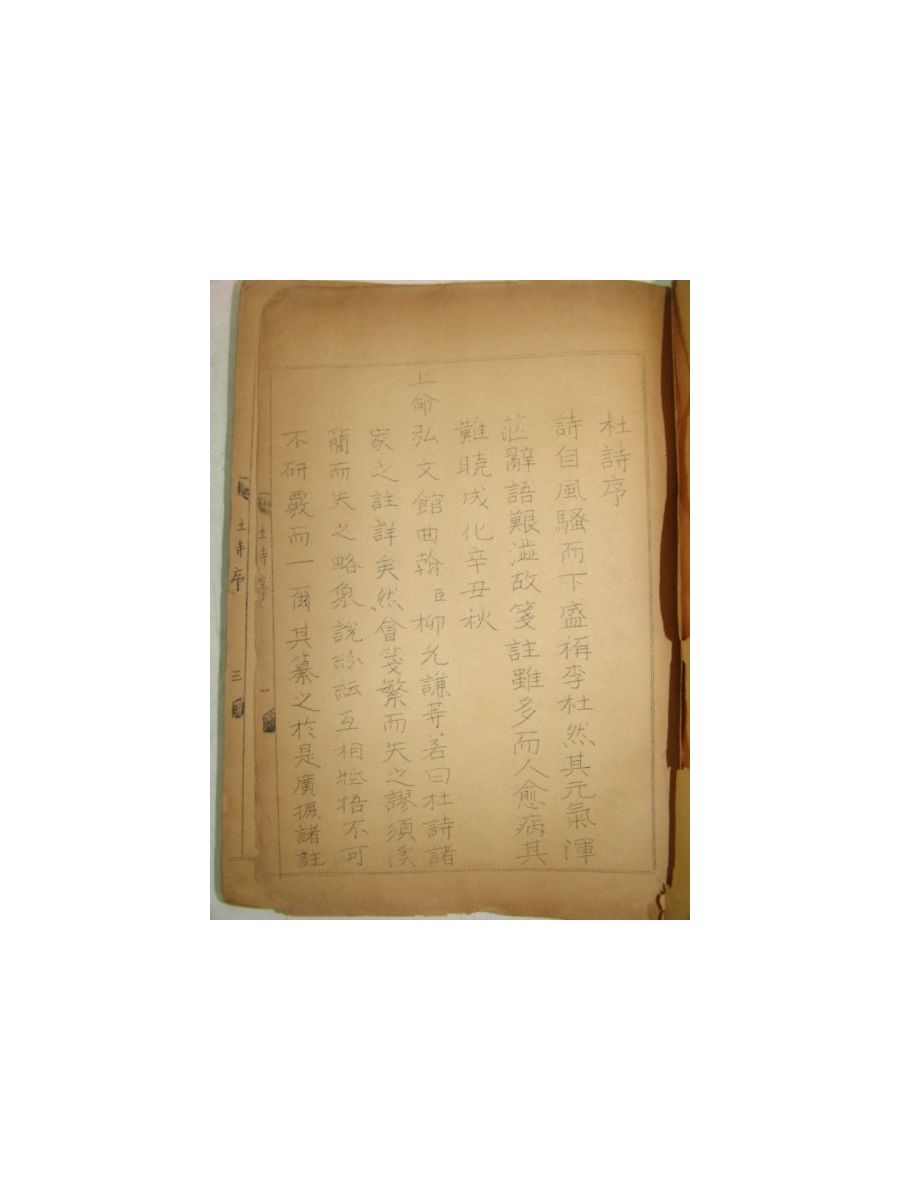 杜詩序
詩自風騷而下盛稱李杜然其元氣渾
茫辭語艱澁故箋註雖多而人愈病其
難曉成化辛丑秋
上命弘文館典翰臣柳允謙等若曰杜詩諸
家之註詳矣然會箋繁而失之謬須溪
簡而失之略衆說紛紜互相牴牾不可
不研覈而一爾其纂之於是廣摭諸註
杜詩序
一
杜詩序
三